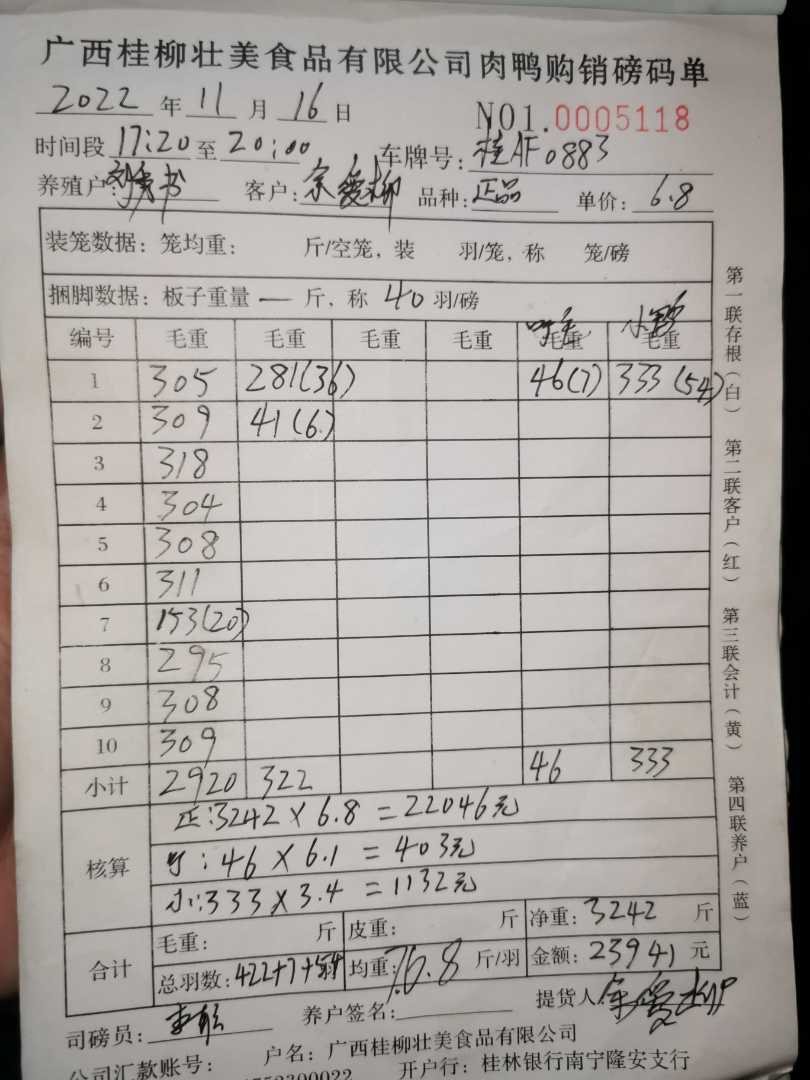 广西桂柳壮美食品有限公司肉鸭购销磅码单
2022 年 11 月 16 日 NO1.0005118
时间段 17:20 至 20:00 车牌号: 桂AF0883
养殖户: 书 客户: 余爱柳 品种: 正品 单价: 6.8
装笼数据: 笼均重: 斤/空笼, 装 羽/笼, 称 笼/磅
捆脚数据: 板子重量 — 斤, 称 40 羽/磅
编号 毛重 毛重 毛重 毛重 毛重 小 毛重
1 305 281(36) 46(7) 333(54)
2 309 41(6)
3 318
4 304
5 308
6 311
7 153(20)
8 295
9 308
10 309
小计 2920 322 46 333
核算 正:3242×6.8=22046元
:46×6.1=403元
小:333×3.4=1132元
合计 毛重: 斤 皮重: 斤 净重: 3242 斤
总羽数: 422+7+ 均重: 6.8 斤/羽 金额: 23941 元
司磅员: 养户签名: 提货人 余爱柳
公司汇款账号: 户名: 广西桂柳壮美食品有限公司
开户行: 桂林银行南宁隆安支行
第一联存根(白) 第二联客户(红) 第三联会计(黄) 第四联养户(蓝)